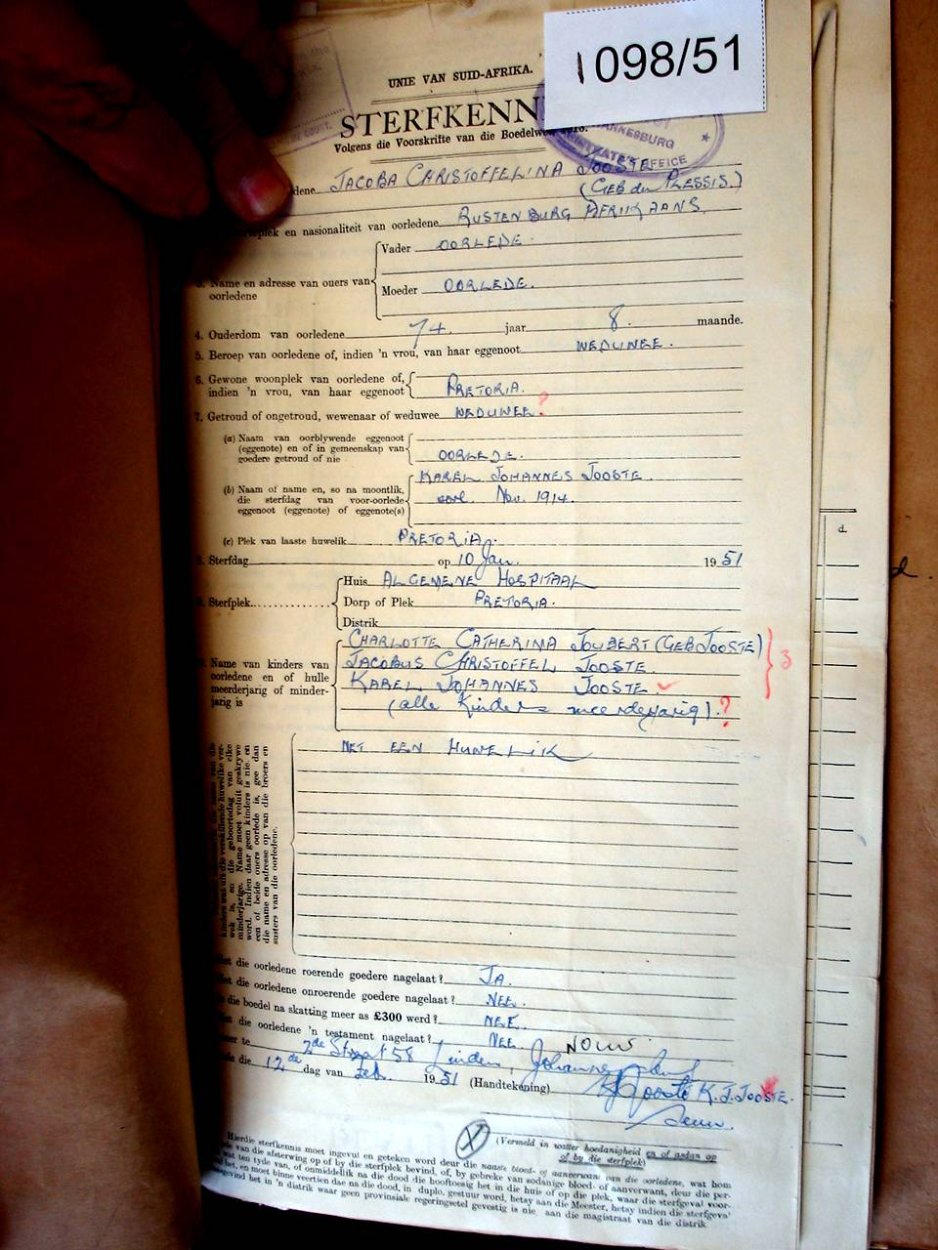 1098/51
UNIE VAN SUID-AFRIKA.
STERFKENN
Volgens die Voorskrifte van die
JOHANNESBURG
OFFICE
JACOBA CHRISTOFFELINA JOOSTE
(GEB du PLESSIS.)
en nasionaliteit van oorledene RUSTENBURG AFRIKAANS.
Name en adresse van ouers van oorledene
Vader OORLEDE.
Moeder OORLEDE.
4. Ouderdom van oorledene 74. jaar 8. maande.
5. Beroep van oorledene of, indien 'n vrou, van haar eggenoot WEDUWEE.
6. Gewone woonplek van oorledene of,
indien 'n vrou, van haar eggenoot PRETORIA.
7. Getroud of ongetroud, wewenaar of weduwee WEDUWEE ?
(a) Naam van oorblywende eggenoot
(eggenote) en of in gemeenskap van
goedere getroud of nie OORLEDE.
(b) Naam of name en, so na moontlik,
die sterfdag van voor-oorlede
eggenoot (eggenote) of eggenote(s)
KAREL JOHANNES JOOSTE.
Nov. 1914.
(c) Plek van laaste huwelik PRETORIA.
8. Sterfdag op 10 Jan. 1951
9. Sterfplek
Huis ALGEMENE HOSPITAAL
Dorp of Plek PRETORIA.
Distrik
Name van kinders van
oorledene en of hulle
meerderjarig of minder-
jarig is
CHARLOTTE CATHERINA JOUBERT (GEB JOOSTE)
JACOBUS CHRISTOFFEL JOOSTE.
KAREL JOHANNES JOOSTE
(alle Kinders meerderjarig). ?
3
kinders was uit die verskillende huwelike ver-
wek is, en die geboortedag van elke
minderjarige. Name moet voluit geskrywe
word. Indien daar geen kinders is nie, en
een of beide ouers oorlede is, gee dan
die name en adresse op van die broers en
susters van die oorledene.
NET EEN HUWELIK
die oorledene roerende goedere nagelaat? JA.
die oorledene onroerende goedere nagelaat? NEE.
die boedel na skatting meer as £300 werd? NEE.
die oorledene 'n testament nagelaat? NEE.
te 2de Straat 58 Linden, Johannesburg
die 12de dag van Feb. 1951 (Handtekening) K. J. JOOSTE.
Seun.
X
(Vermeld in watter hoedanigheid en of aldan op
of by die sterfplek)
Hierdie sterfkennis moet ingevul en geteken word deur die naaste bloed- of aanverwant van die oorledene, wat hom
van die afsterwing op of by die sterfplek bevind, of, by gebreke van sodanige bloed- of aanverwant, deur die per-
wat ten tyde van, of onmiddellik na die dood die hooftoesig het in die huis of op die plek, waar die sterfgeval voor-
het, en moet binne veertien dae na die dood, in duplo, gestuur word, hetsy aan die Meester, hetsy indien die sterfgeval
het in 'n distrik waar geen provinsiale regeringsetel gevestig is nie, aan die magistraat van die distrik.
d.